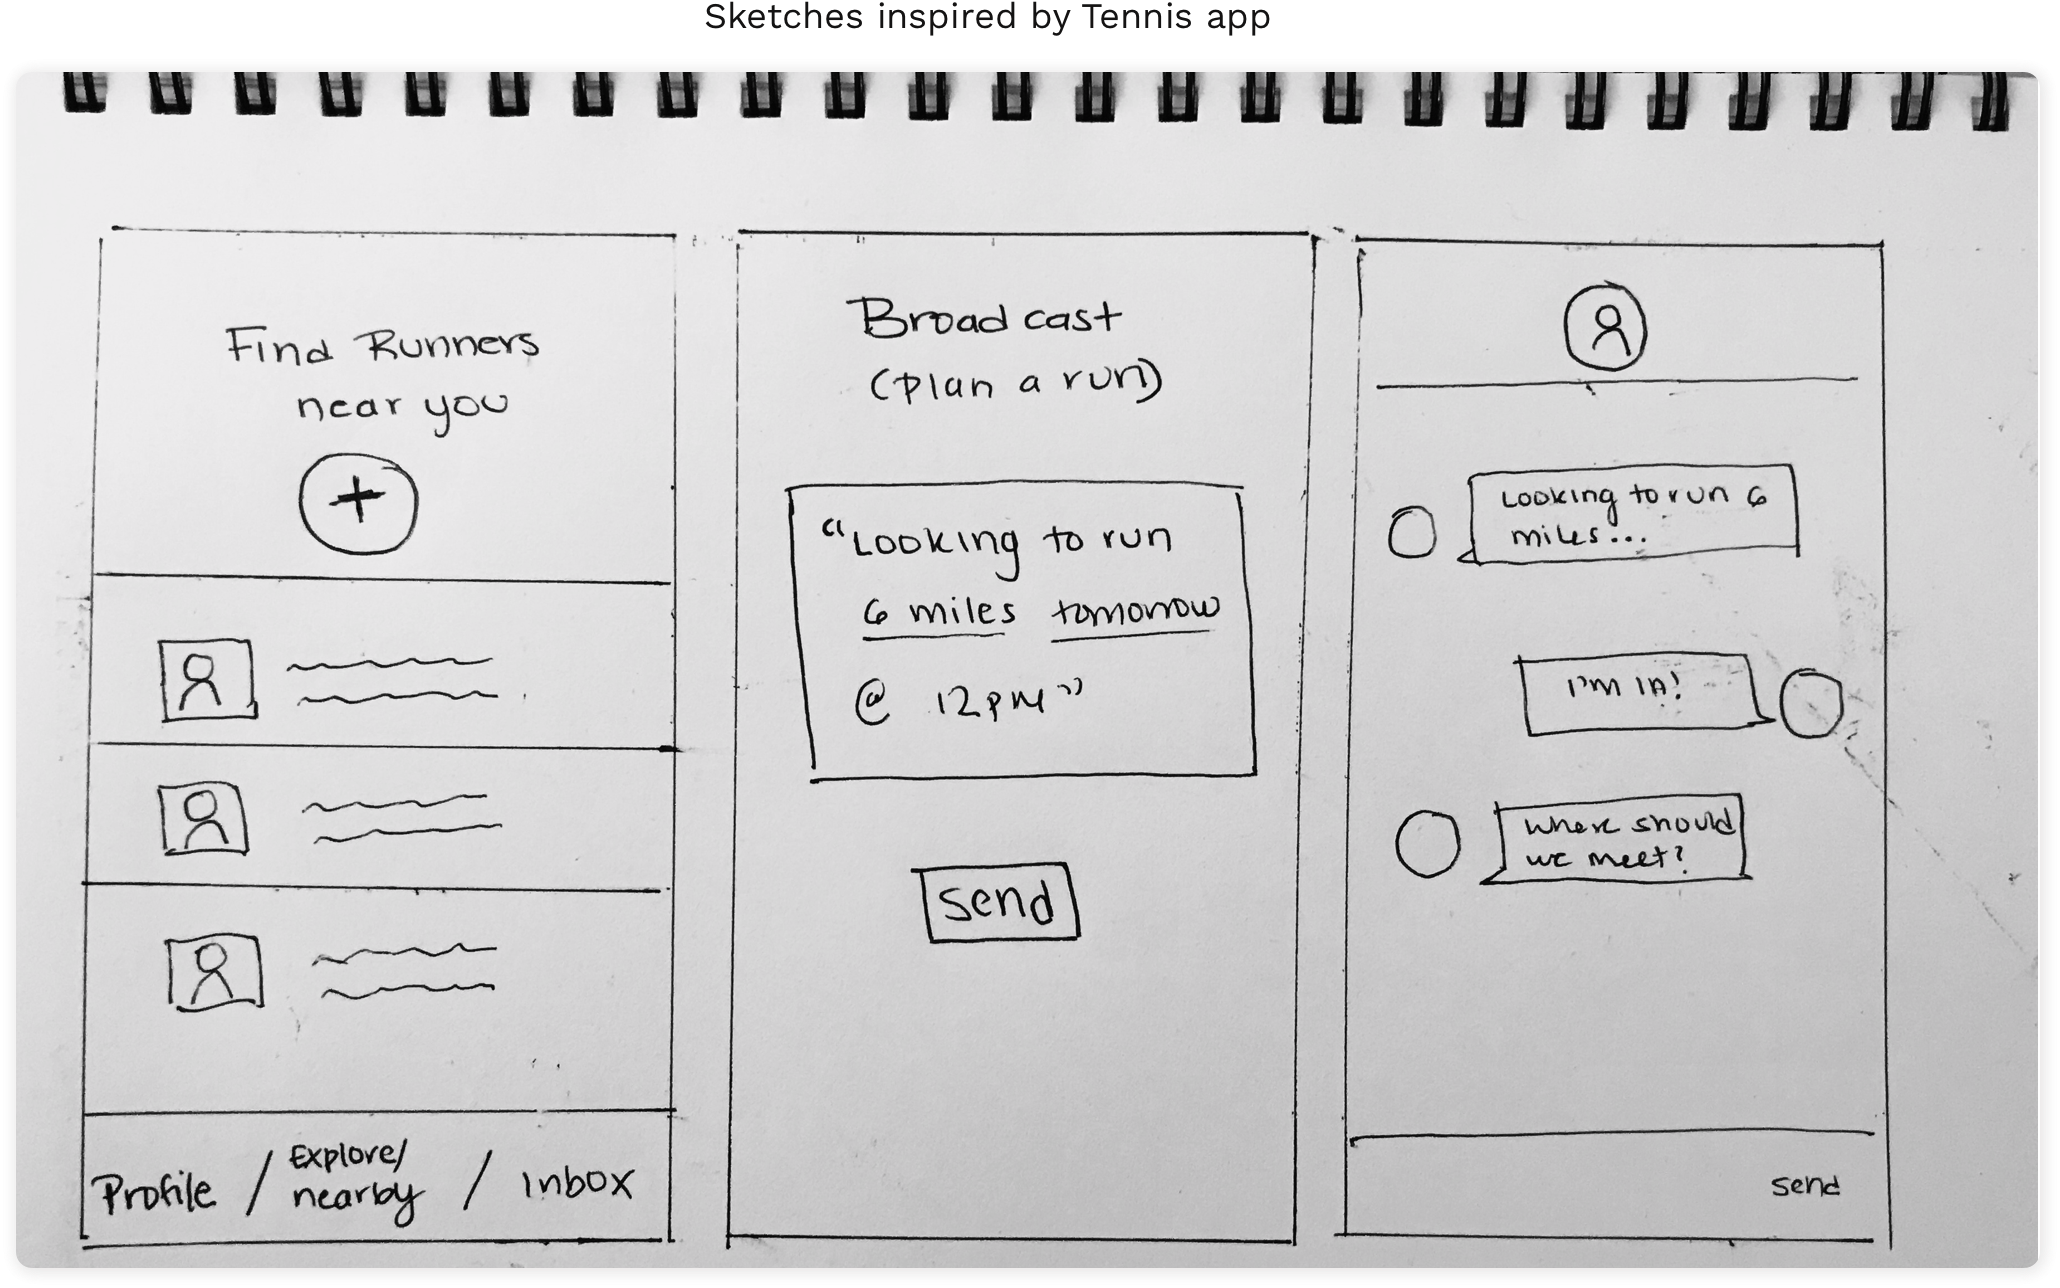 Sketches inspired by Tennis app
Find Runners
near you
+
Profile / Explore/ nearby / Inbox
Broadcast
(plan a run)
"Looking to run
6 miles tomorrow
@ 12pm"
send
Looking to run 6
miles...
I'm in!
Where should
we meet?
send